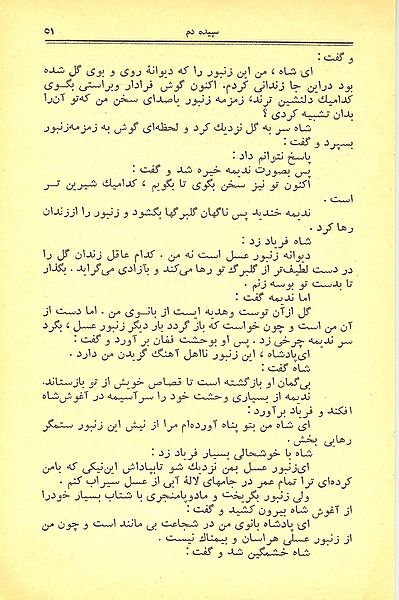 سپیده دم
۵۱
و گفت :
ای شاه ، من این زنبور را که دیوانهٔ روی و بوی گل شده
بود دراین جا زندانی کردم. اکنون گوش فرادار وبراستی بگوی
کدامیك دلنشین ترند، زمزمه زنبور یاصدای سخن من که‌تو آن‌را
بدان تشبیه کردی ؟
شاه سر به گل نزدیك کرد و لحظه‌ای گوش به زمزمه‌زنبور
بسپرد و گفت :
پاسخ نتوانم داد :
پس بصورت ندیمه خیره شد و گفت :
اکنون تو نیز سخن بگوی تا بگویم ، کدامیك شیرین تر
است .
ندیمه خندید پس ناگهان گلبرگها بگشود و زنبور را اززندان
رها کرد .
شاه فریاد زد :
دیوانه زنبور عسل است نه من . کدام عاقل زندان گل را
در دست لطیف‌تر از گلبرگ تو رها می‌کند و بآزادی می‌گراید . بگذار
تا بدست تو بوسه زنم .
اما ندیمه گفت :
گل ازآن توست وهدیه ایست از بانوی من . اما دست از
آن من است و چون خواست که باز گردد بار دیگر زنبور عسل ، بگرد
سر ندیمه چرخی زد . پس او بوحشت فغان بر آورد و گفت :
ای‌پادشاه ، این زنبور نااهل آهنگ گزیدن من دارد .
شاه گفت :
بی‌گمان او بازگشته است تا قصاص خویش از تو بازستاند.
ندیمه از بسیاری وحشت خود را سرآسیمه در آغوش‌شاه
افکند و فریاد برآورد :
ای شاه من بتو پناه آورده‌ام مرا از نیش این زنبور ستمگر
رهایی بخش .
شاه با خوشحالی بسیار فریاد زد :
ای‌زنبور عسل بمن نزدیك شو تابپاداش این‌نیکی که بامن
کرده‌ای ترا تمام عمر در جامهای لالهٔ آبی از عسل سیراب کنم .
ولی زنبور بگریخت و مادوپامنجری با شتاب بسیار خودرا
از آغوش شاه بیرون کشید و گفت :
ای پادشاه بانوی من در شجاعت بی مانند است و چون من
از زنبور عسلی هراسان و بیمناك نیست .
شاه خشمگین شد و گفت :